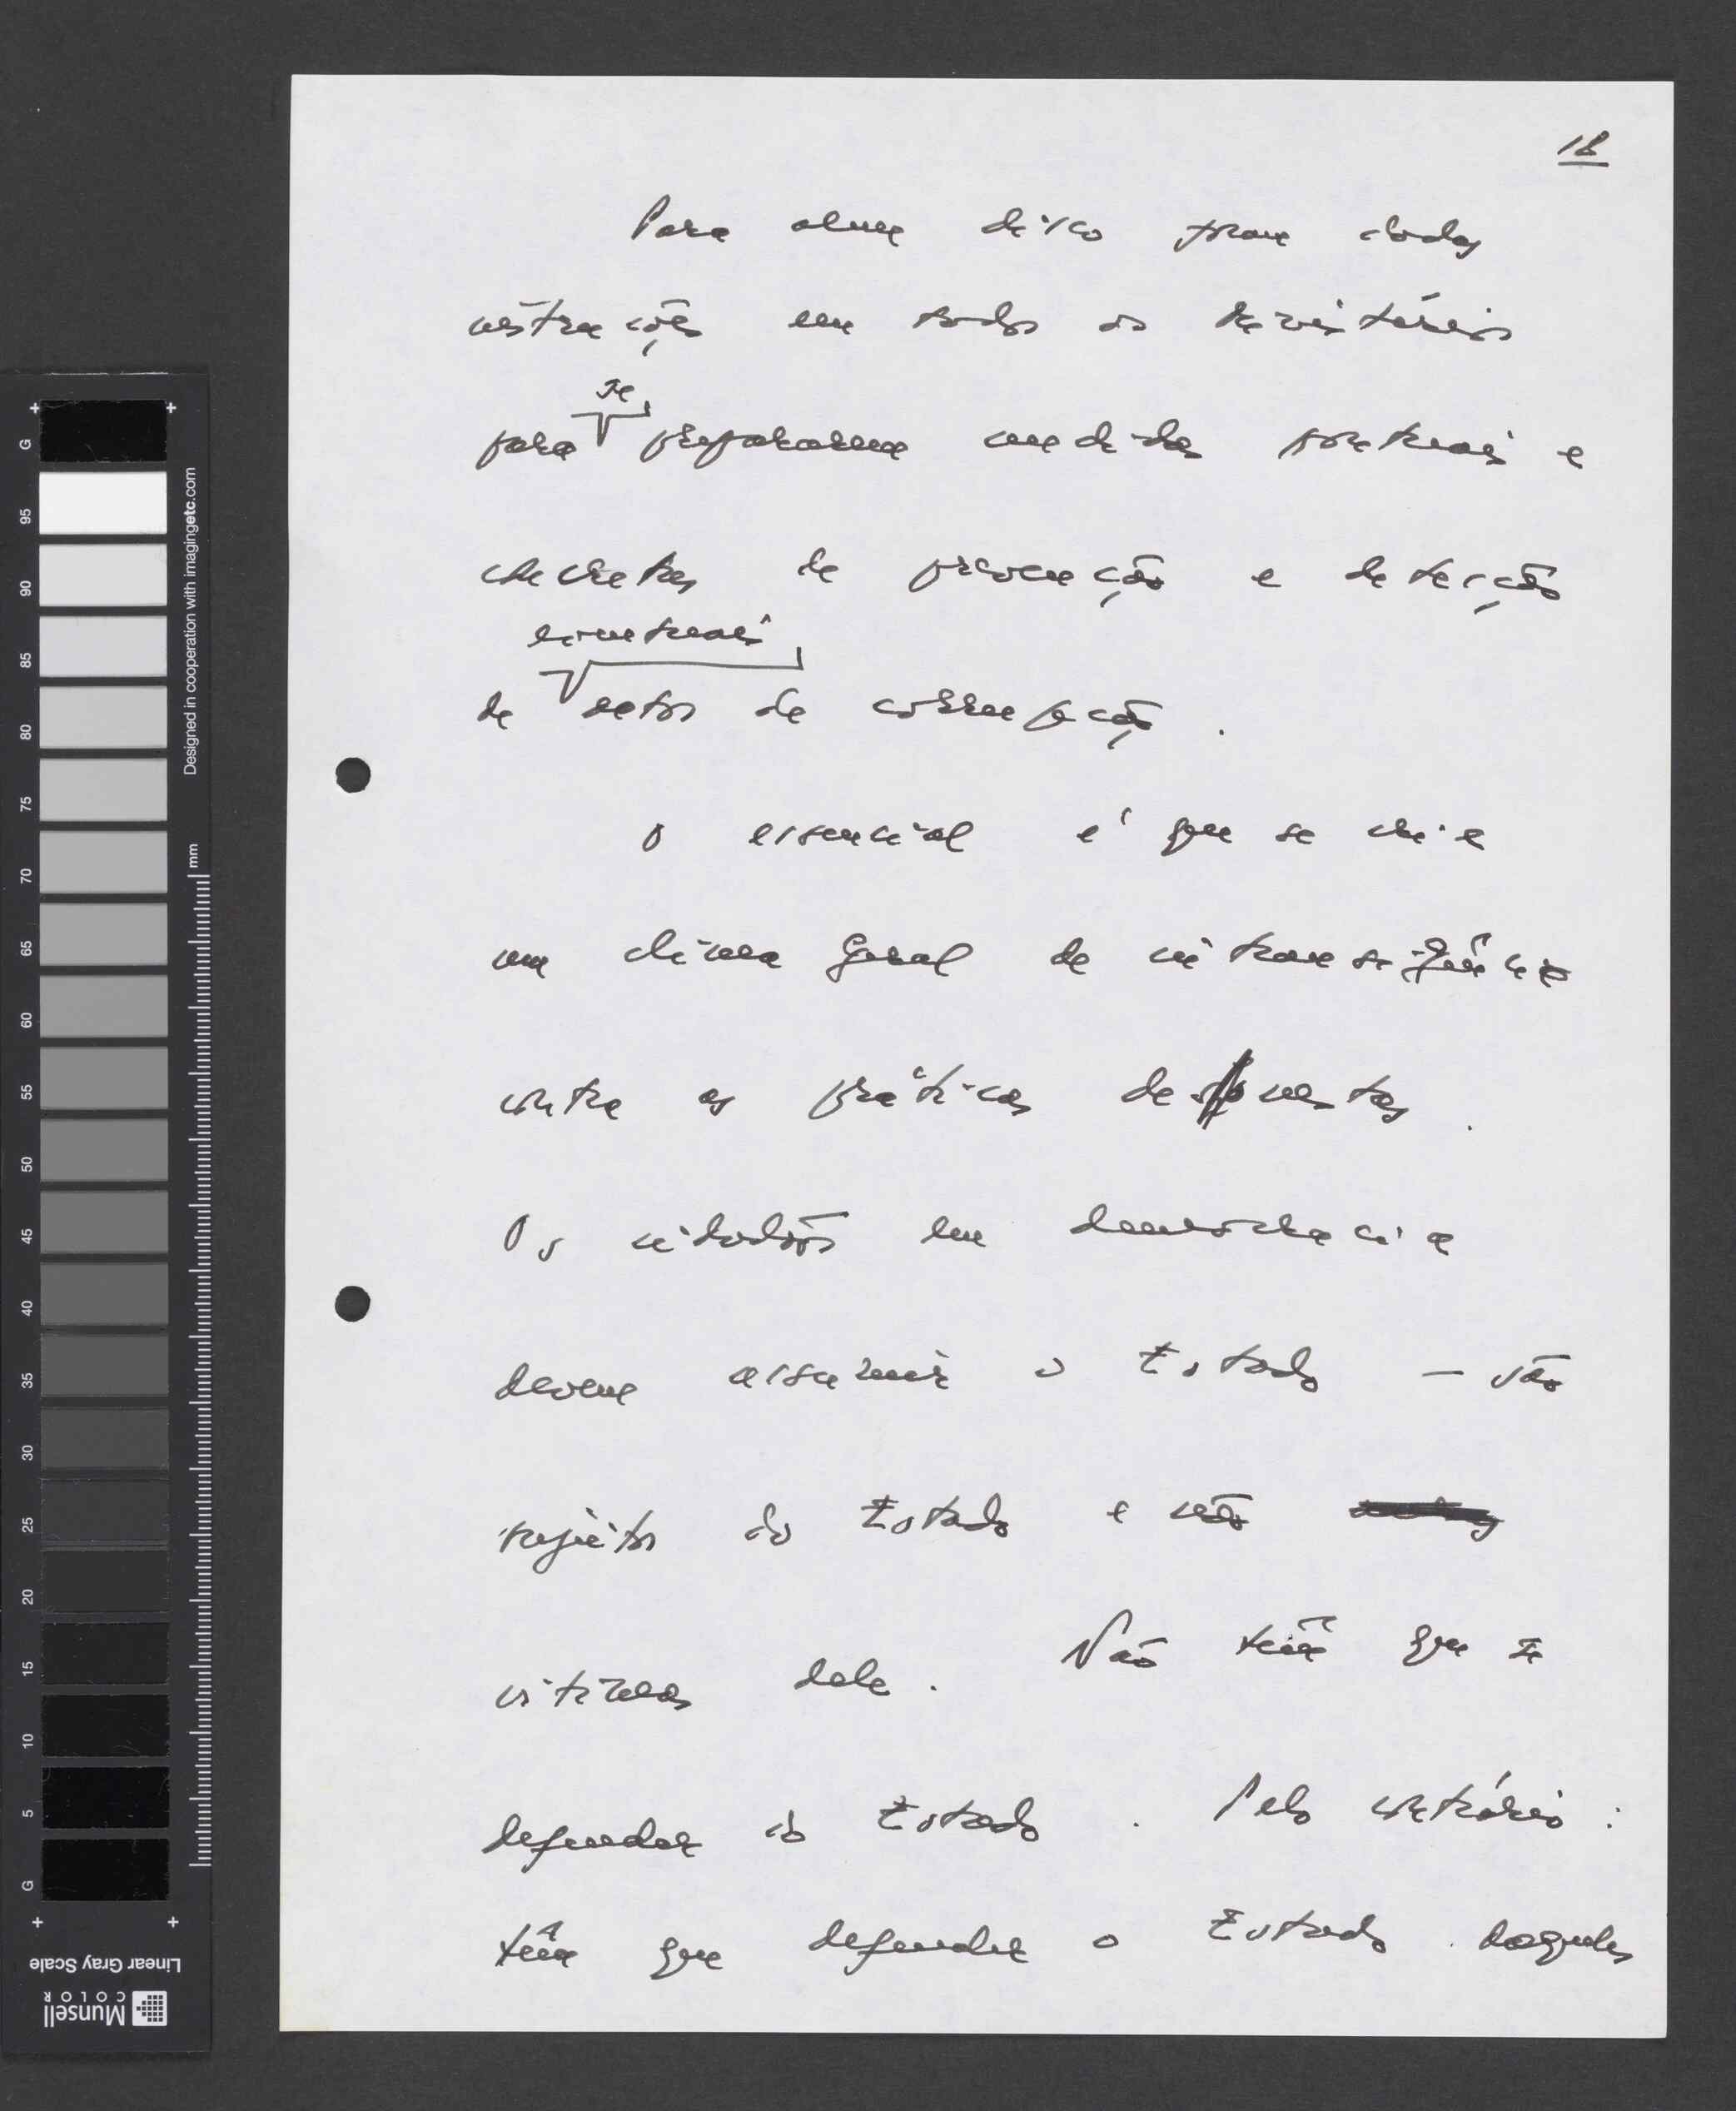 18
Para além disso foram dadas
instruções em todos os Ministérios
para se prepararem medidas pontuais e
concretas de prevenção e detecção
de eventuais actos de corrupção.
O essencial é que se crie
um clima geral de intransigência
contra as práticas desonestas.
Os cidadãos em democracia
devem assumir o Estado - são
sujeitos do Estado e não
vítimas dele. Não têm que se
defender do Estado. Pelo contrário:
têm que defender o Estado daqueles
G 95 90 85 80 75 70 65 60 55 50 45 40 35 30 25 20 15 10 5 G
mm
Designed in cooperation with imagingetc.com
Linear Gray Scale
Munsell
COLOR